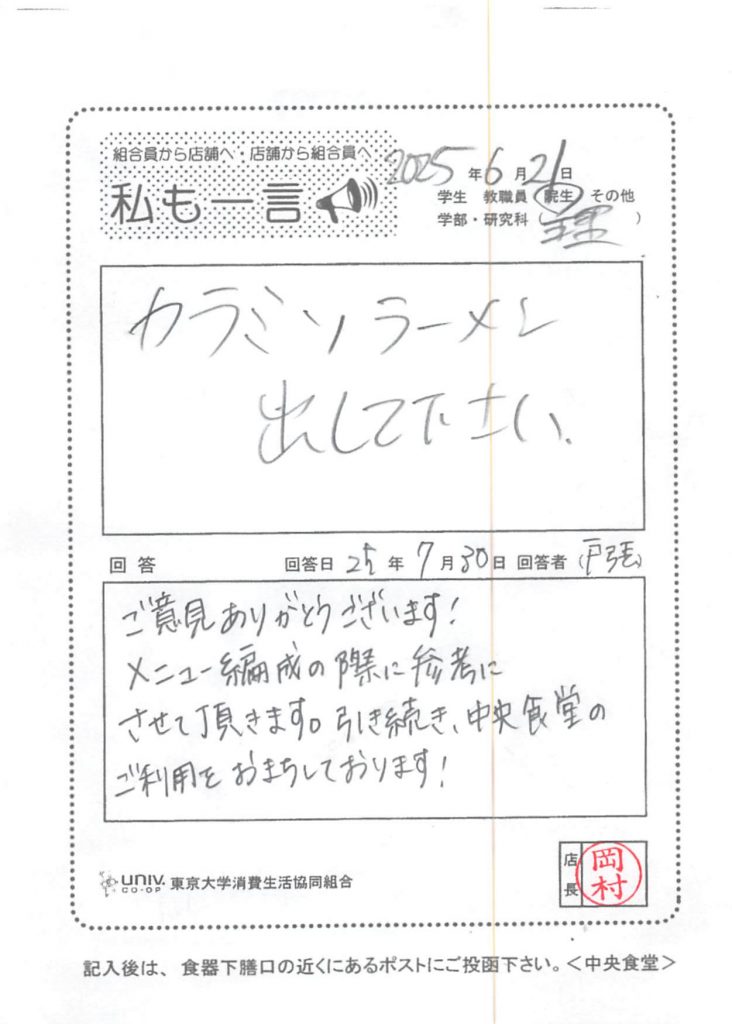 組合員から店舗へ・店舗から組合員へ
私も一言
2025年6月26日
学生 教職員 院生 その他
学部・研究科(理)
カラミソラーメン
出して下さい。
回答 回答日 25年7月30日 回答者(戸張)
ご意見ありがとうございます!
メニュー編成の際に参考に
させて頂きます。引き続き、中央食堂の
ご利用をおまちしております!
UNIV. CO-OP 東京大学消費生活協同組合
店長 岡村
記入後は、食器下膳口の近くにあるポストにご投函下さい。<中央食堂>